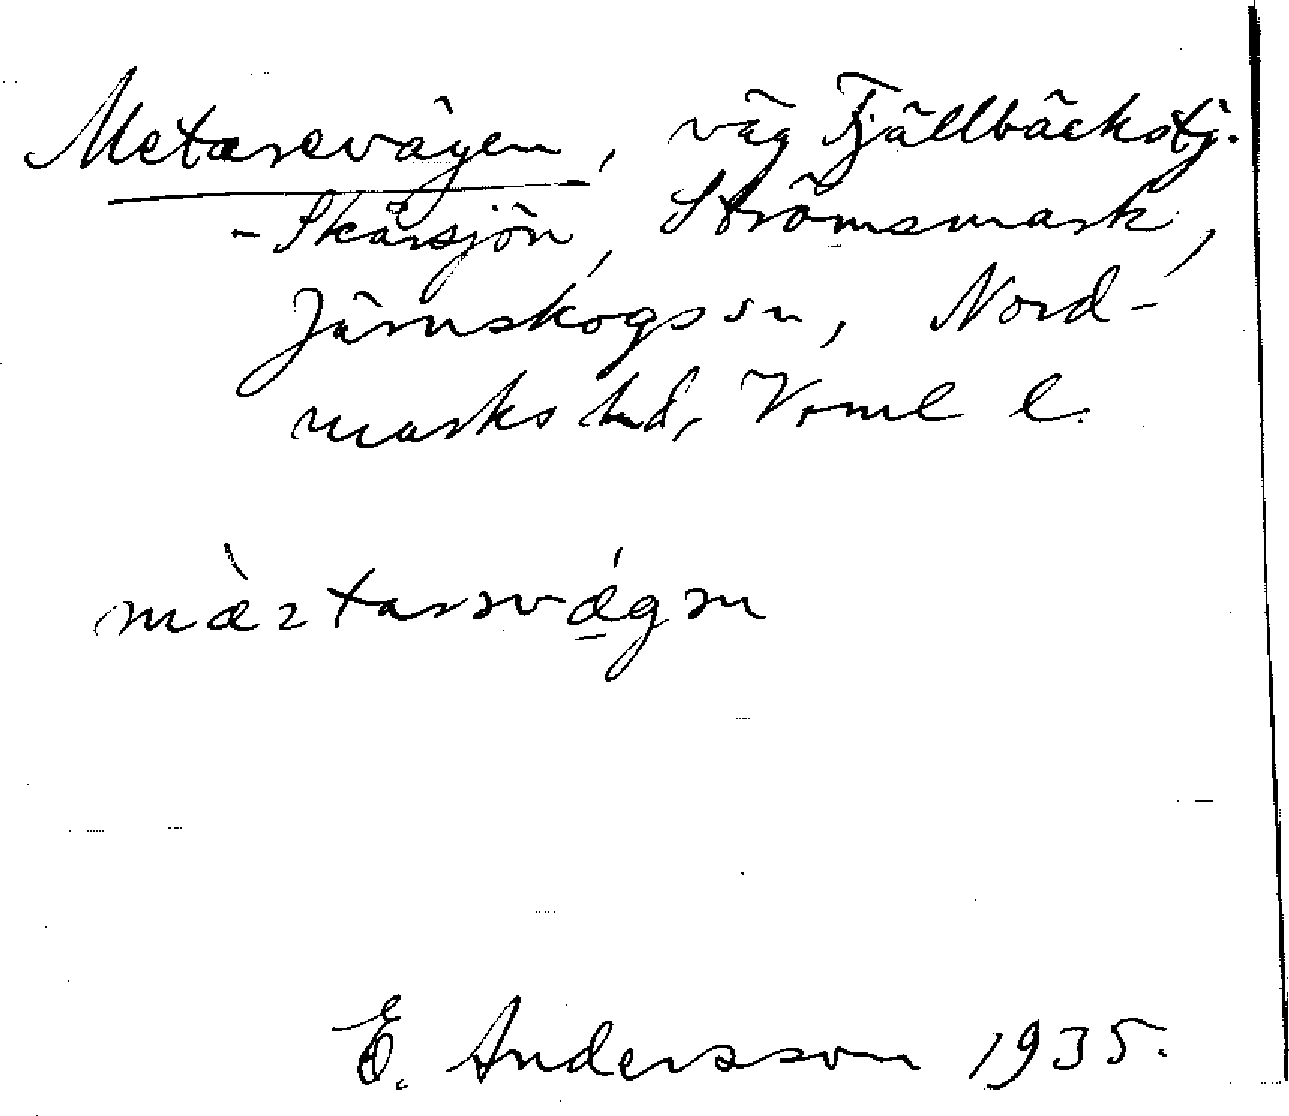 Metarevägen, väg Fjällbäckstj.
- Skårsjön, Strömsmark,
Järnskogs sn, Nord-
marks hd, Vrml l.
mæ̀ztarnvǽgən
E. Andersson 1935.